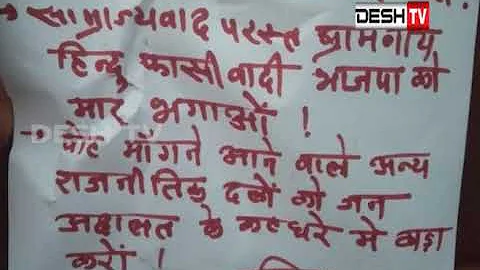 DESH TV
→ साम्राज्यवाद परस्त ब्रामनीय
हिन्दू फासीवादी भाजपा को
मार भगाओं !
DESH TV
→ वोट माँगने आने वाले अन्य
राजनीतिक दलों को जन
अदालत के कटघरे मे खड़ा
करों !